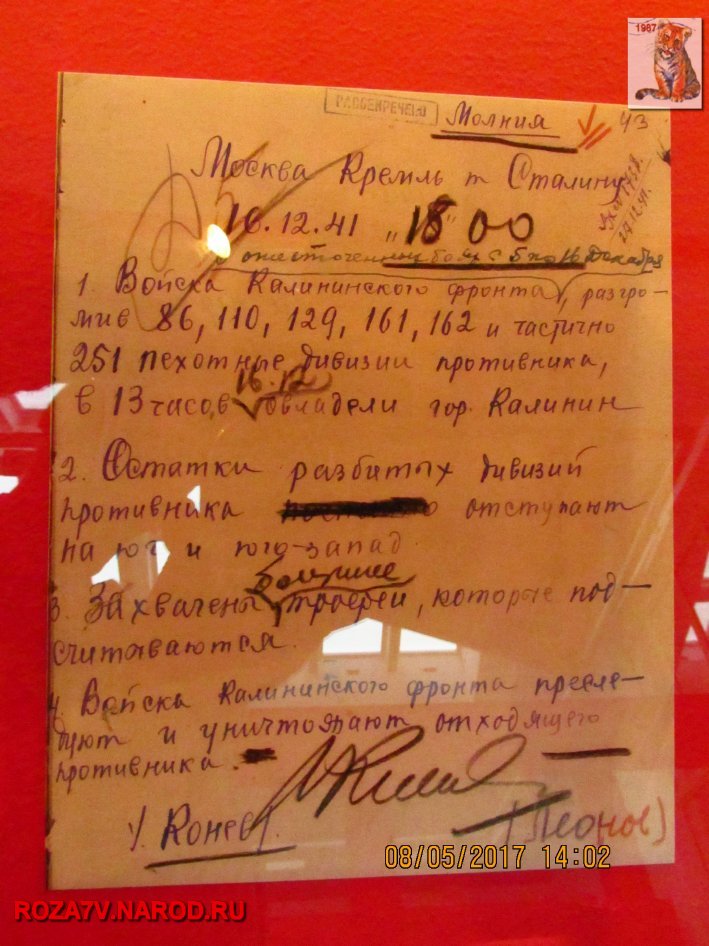 1987
РАССЕКРЕЧЕНО
Молния
43
Москва Кремль т Сталину
24.12.41.
16.12.41 „18" 00
ожесточенных боях с 5 по 16 декабря
1. Войска Калининского фронта, разгро-
мив 86, 110, 129, 161, 162 и частично
251 пехотные дивизии противника,
16.12
в 13 часов овладели гор. Калинин
2. Остатки разбитых дивизий
противника отступают
на юг и юго-запад.
большие
3. Захвачены трофеи, которые под-
считываются.
4. Войска Калининского фронта пресле-
дуют и уничтожают отходящего
противника.
Конев
(Леонов)
08/05/2017 14:02
ROZA7V.NAROD.RU